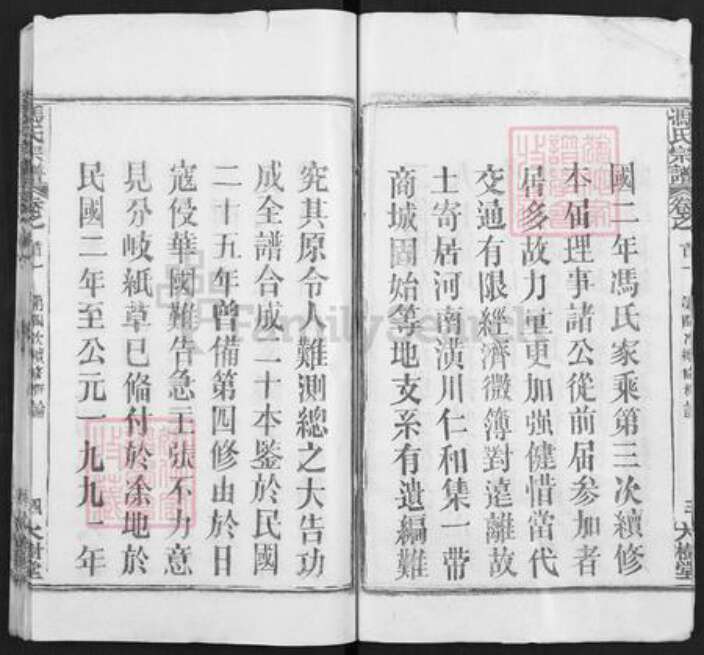 國二年馮氏家乘第三次續修
本届理事諸公從前届参加者
居多故力量更加强健惜當代
交通有限經濟微簿對遠離故
土寄居河南潢川仁和集一带
商城固始等地支系有遺编難
究其原令人難測總之大告功
成全譜合成二十本鉴於民國
二十五年曾備第四修由於日
寇侵華國難告急主張不力意
見分岐紙草已偹付於凃地於
民國二年至公元一九九一年
馮氏宗譜
卷之
首一
三
大樹堂
馮氏宗譜
卷之
首一
四
大樹堂
FamilySearch